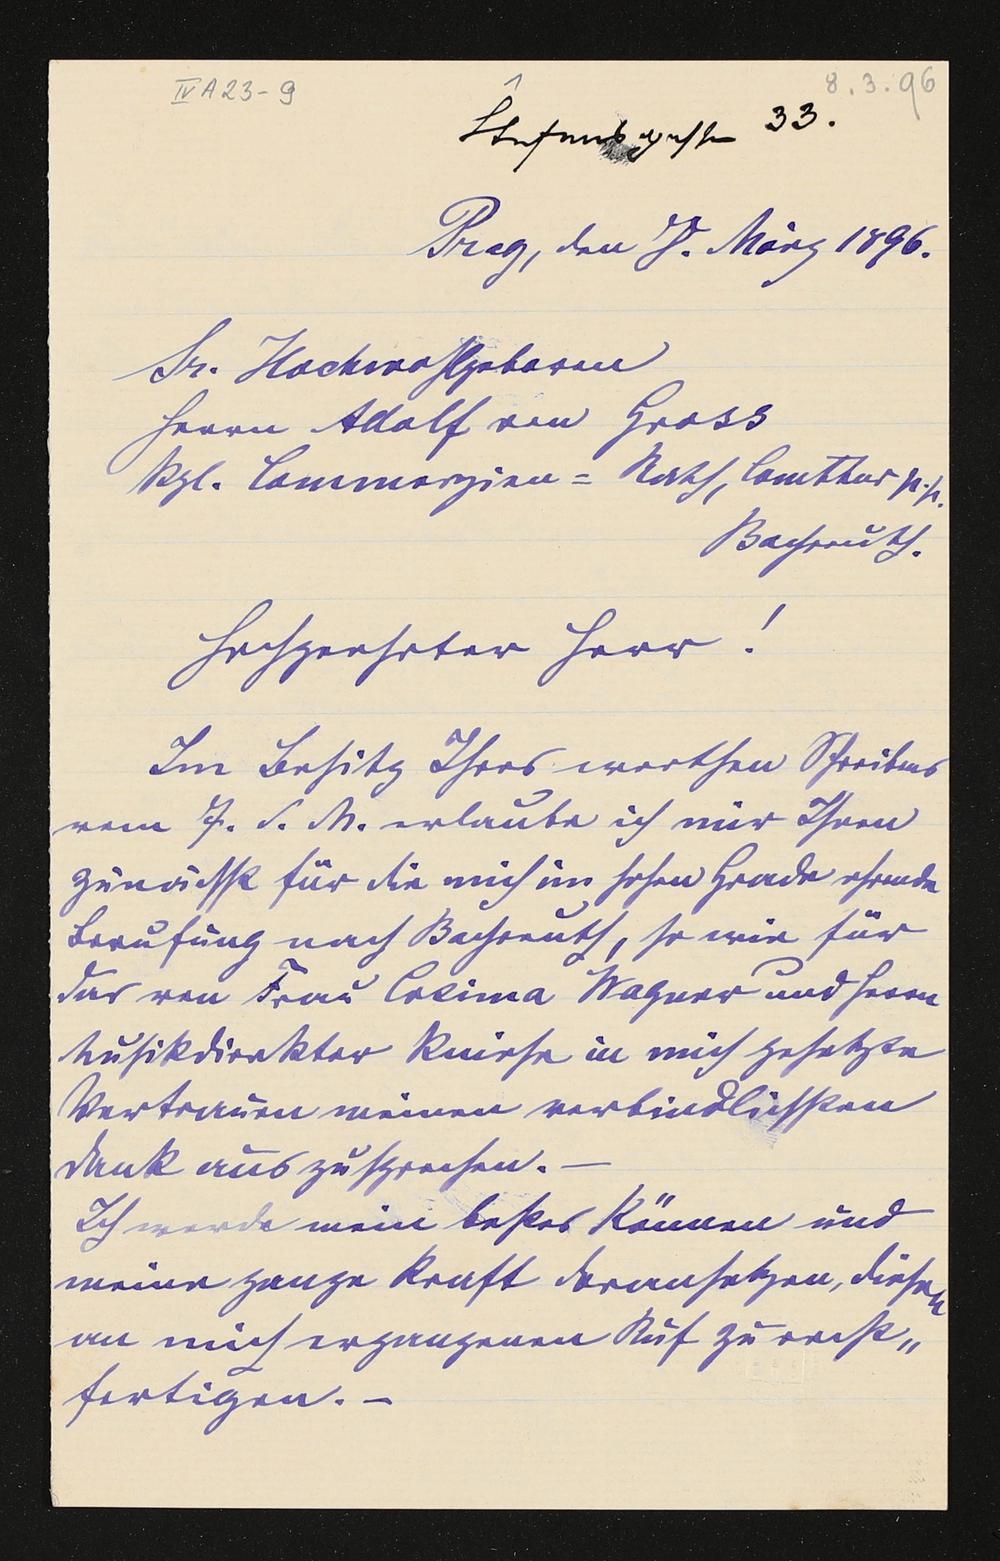 IV A 23-9
8.3.96
Stefansgasse 33.
Prag, den 8. März 1896.
Sr. Hochwohlgeboren
Herrn Adolf von Gross
Kgl. Commerzien = Rath, Comthur p.p.
Bayreuth.
Hochgeehrter Herr!
Im Besitz Ihres werthen Schreibens
vom 7. d. M. erlaube ich mir Ihnen
zunächst für die mich im hohen Grade ehrende
Berufung nach Bayreuth, so wie für
das von Frau Cosima Wagner und Herrn
Musikdirektor Kniese in mich gesetzte
Vertrauen meinen verbindlichsten
Dank auszusprechen. —
Ich werde mein bestes Können und
meine ganze Kraft daransetzen, diesen
an mich ergangenen Ruf zu recht„
fertigen. —